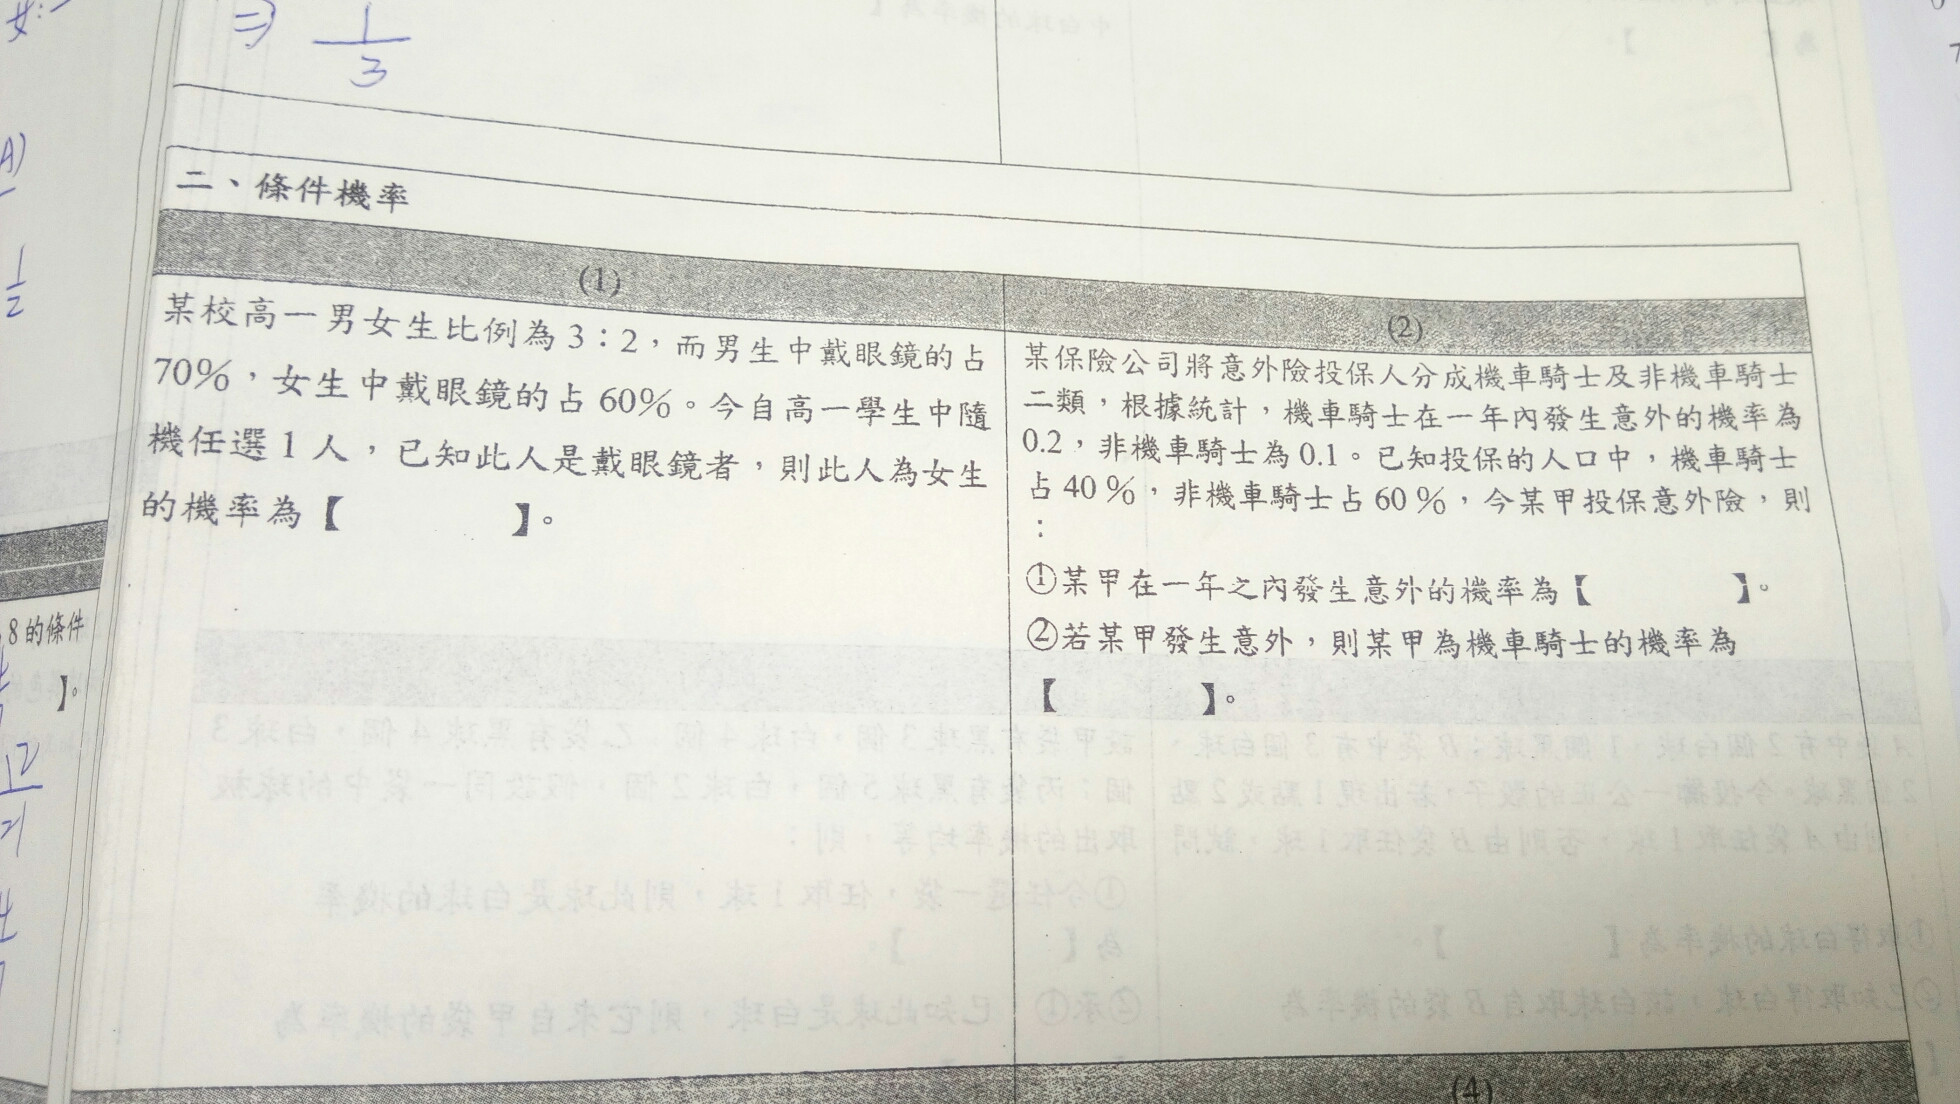 女:
A)
1
2
8的條件
】。
⇒ 1
3
二、條件機率
(1)
某校高一男女生比例為3:2,而男生中戴眼鏡的占
70%,女生中戴眼鏡的占60%。今自高一學生中隨
機任選1人,已知此人是戴眼鏡者,則此人為女生
的機率為【 】。
(2)
某保險公司將意外險投保人分成機車騎士及非機車騎士
二類,根據統計,機車騎士在一年內發生意外的機率為
0.2,非機車騎士為0.1。已知投保的人口中,機車騎士
占40%,非機車騎士占60%,今某甲投保意外險,則
:
①某甲在一年之內發生意外的機率為【 】。
②若某甲發生意外,則某甲為機車騎士的機率為
【 】。
(4)